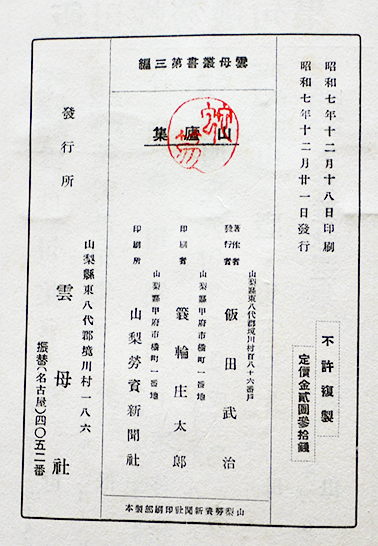 昭和七年十二月十八日印刷
昭和七年十二月廿一日發行
不許複製
定價金貳圓參拾錢
雲母叢書第三編
山廬集
山梨縣東八代郡境川村百八十六番戶
著作者
發行者
飯田武治
山梨縣甲府市橘町一番地
印刷者
簑輪庄太郎
山梨縣甲府市橘町一番地
印刷所
山梨勞資新聞社
發行所
山梨縣東八代郡境川村一八六
雲母社
振替(名古屋)四〇五二番
山梨勞資新聞社印刷部製本